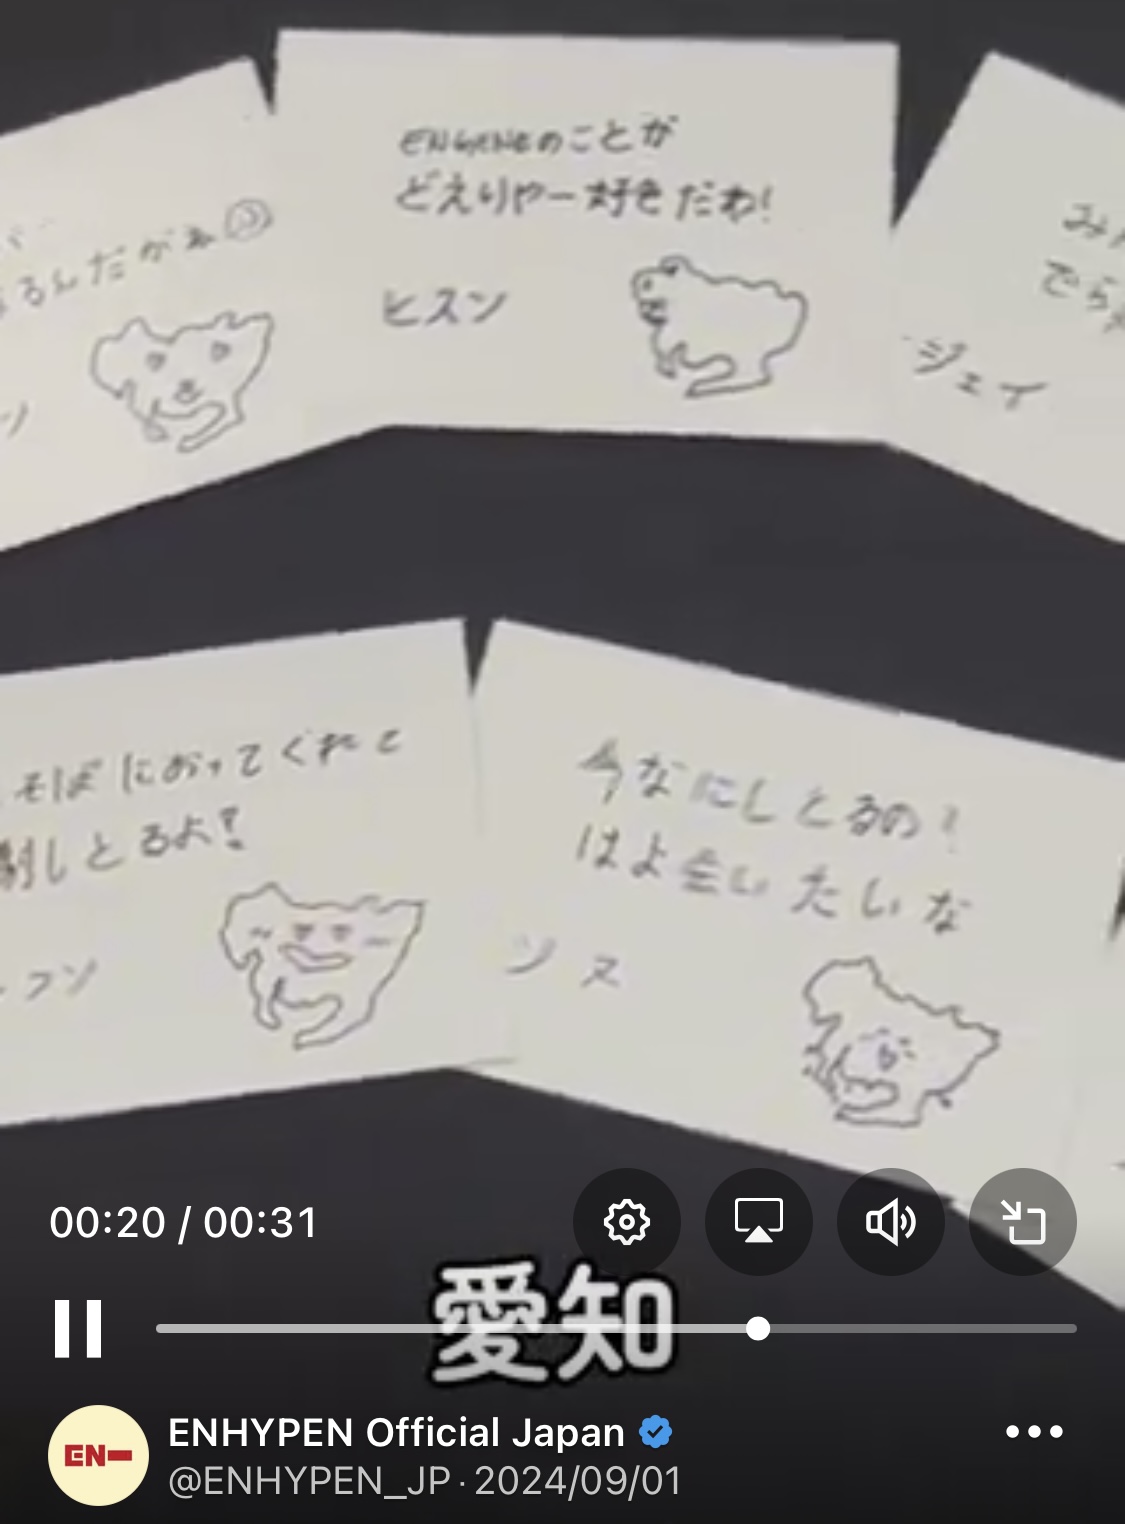 るんだがね
ENGENEのことが
どえりゃー好きだわ!
ヒスン
みん
でら
ジェイ
ン
そばにおってくれて
謝しとるよ!
フン
今なにしとるの?
はよ会いたいな
ソヌ
00:20 / 00:31
愛知
EN-
ENHYPEN Official Japan
@ENHYPEN_JP · 2024/09/01